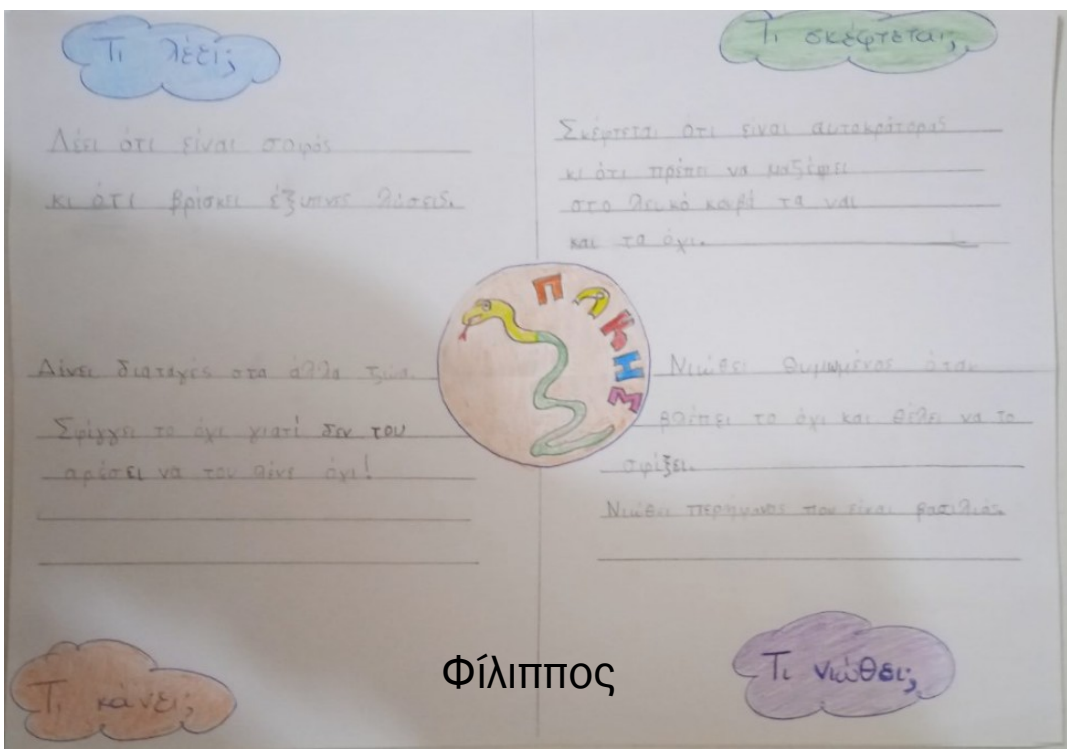 Τι λέει;
Λέει ότι είναι σοφός
κι ότι βρίσκει έξυπνες λύσεις.
Τι σκέφτεται;
Σκέφτεται ότι είναι αυτοκράτορας
κι ότι πρέπει να μαζέψει
στο λευκό κουβά τα ναι
και τα όχι.
ΠΛΗΣ
Δίνει διαταγές στα άλλα ζώα.
Σφίγγει το όχι γιατί δεν του
αρέσει να του λένε όχι!
Τι κάνει;
Νιώθει θυμωμένος όταν
βλέπει το όχι και θέλει να το
σφίξει.
Νιώθει περήφανος που είναι βασιλιάς.
Τι νιώθει;
Φίλιππος